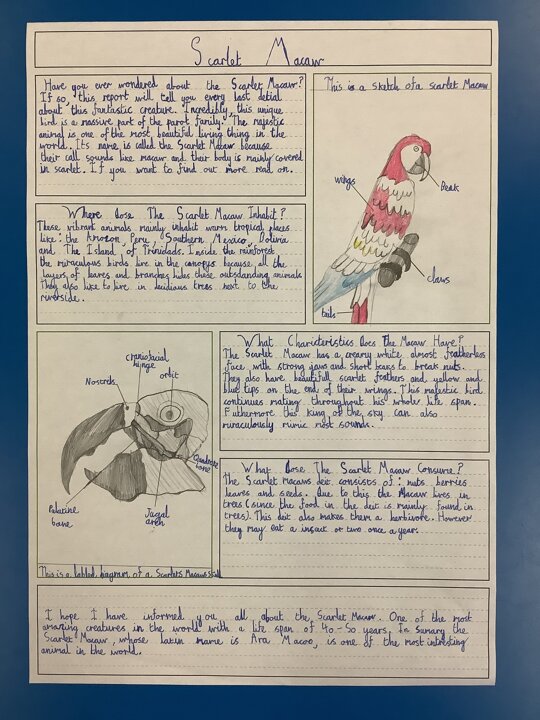 Scarlet Macaw
Have you ever wondered about the Scarlet Macaw?
If so, this report will tell you every last detial
about this fantastic creature. Incredibly, this unique
bird is a massive part of the parot family. The majestic
animal is one of the most beautiful living thing in the
world. It's name is called the Scarlet Macaw because
their call sounds like macaw and their body is mainly covered
in scarlet. If you want to find out more read on.
This is a sketch of a scarlet Macaw
wings
beak
claws
tails
Where dose The Scarlet Macaw Inhabit?
These vibrant animals mainly inhabit warm tropical places
like: the Amozon, Peru, Southern Mexico, Bolivia
and The Island of Trinidads. Inside the rainforest,
the miraculous birds live in the canopys because all the
layers of leaves and branches hides these outsdanding animals.
They also like to live in decidious trees next to the
riverside.
craniofacial
hinge
orbit
Nostrds
Quadrate
bone
Palatine
bone
Jugal
arch
This is a labled diagram of a Scarlets Macaws Skull
What Charicteristics Does The Macaw Have?
The Scarlet Macaw has a creamy white, almost featherless
face, with strong jaws and short beaks to break nuts.
They also have beautifull scarlet feathers and yellow and
blue tips on the end of their wings. This majestic bird
continues mating throughout his whole life span.
Futhermore this king of the sky can also
miraculously mimic most sounds.
What dose The Scarlet Macaw Consume?
The Scarlet macaws deit consists of: nuts, berries
leaves and seeds. Due to this the Macaw lives in
trees (since the food in the deit is mainly found in
trees). This deit also makes them a herbivore. However
they may eat a insect or two once a year.
I hope I have informed you all about the Scarlet Macaw. One of the most
amazing creatures in the world with a life span of 40-50 years. In sumary the
Scarlet Macaw, whose latin name is Ara Macoo, is one of the most interesting
animal in the world.